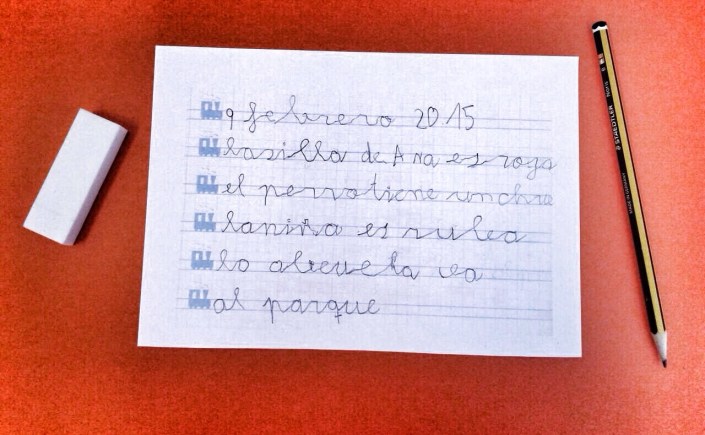 9 febrero 2015
lasilla de Ana es roja
el perro tiene un
laniña es rubea
la abuela va
al parque
STAEDTLER